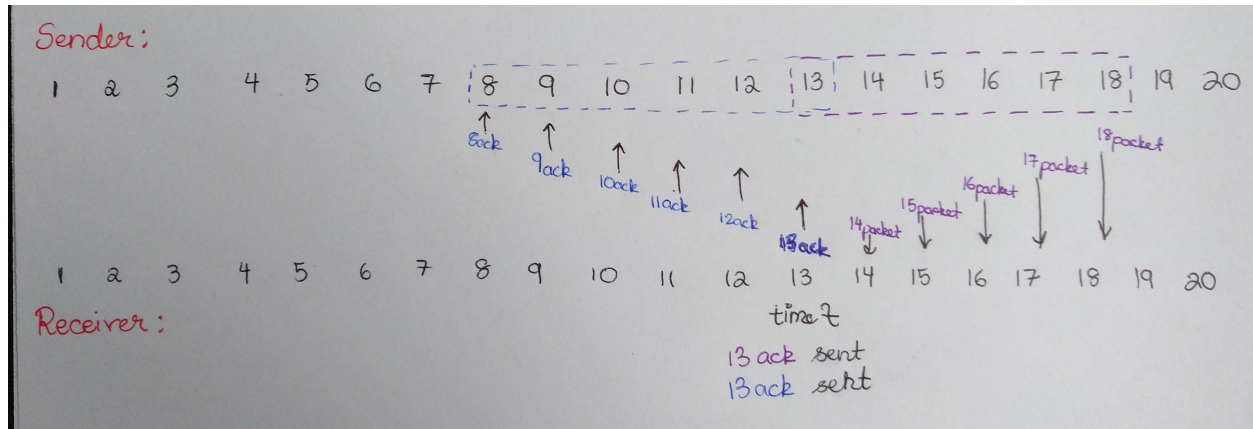 Sender:
1 2 3 4 5 6 7 8 9 10 11 12 13 14 15 16 17 18 19 20
8ack
9ack
10ack
11ack
12ack
13ack
14packet
15packet
16packet
17packet
18packet
1 2 3 4 5 6 7 8 9 10 11 12 13 14 15 16 17 18 19 20
Receiver:
time t
13 ack sent
13 ack sent